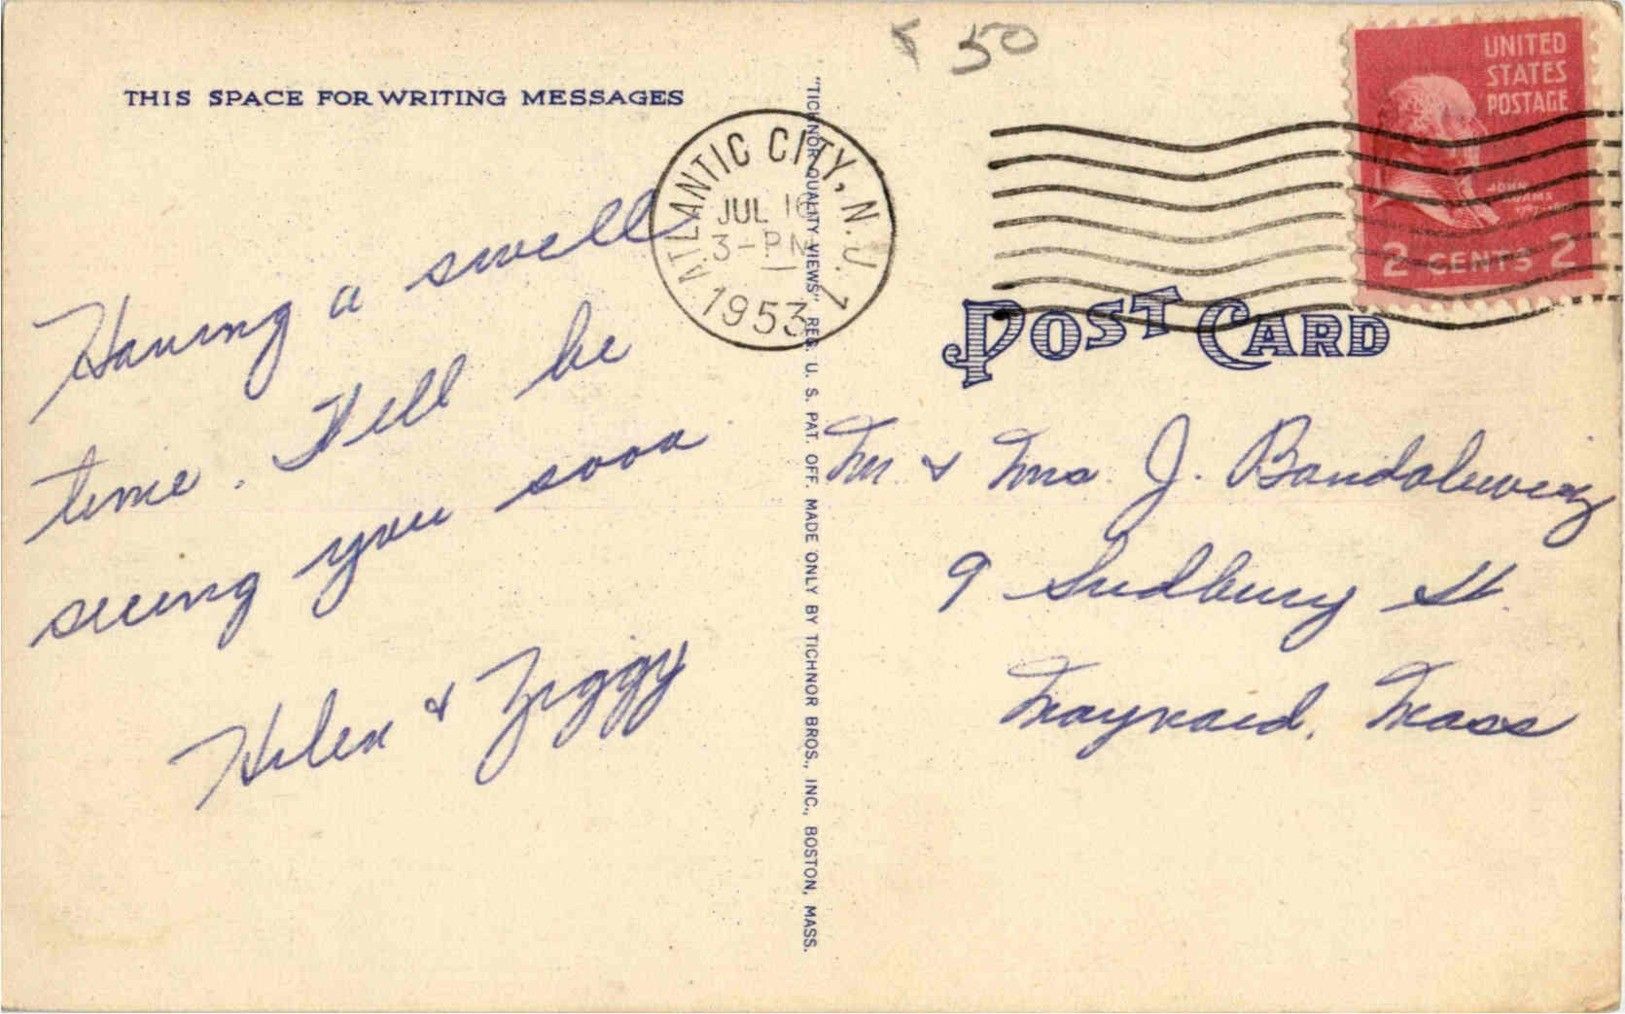 THIS SPACE FOR WRITING MESSAGES
Having a swell
time. Will be
seeing you soon
Helen & Ziggy
"TICHNOR QUALITY VIEWS" REG. U. S. PAT. OFF. MADE ONLY BY TICHNOR BROS., INC., BOSTON, MASS.
50
ATLANTIC CITY, N.J. 1
JUL 16
3 - PM
1953
UNITED
STATES
POSTAGE
JOHN
ADAMS
2 CENTS 2
POST CARD
Mr & Mrs. J.
9 Sudbury St.
Maynard, Mass